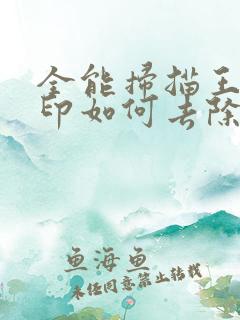 全能掃描王
印如何去除
鱼海鱼
未经同意禁止转载